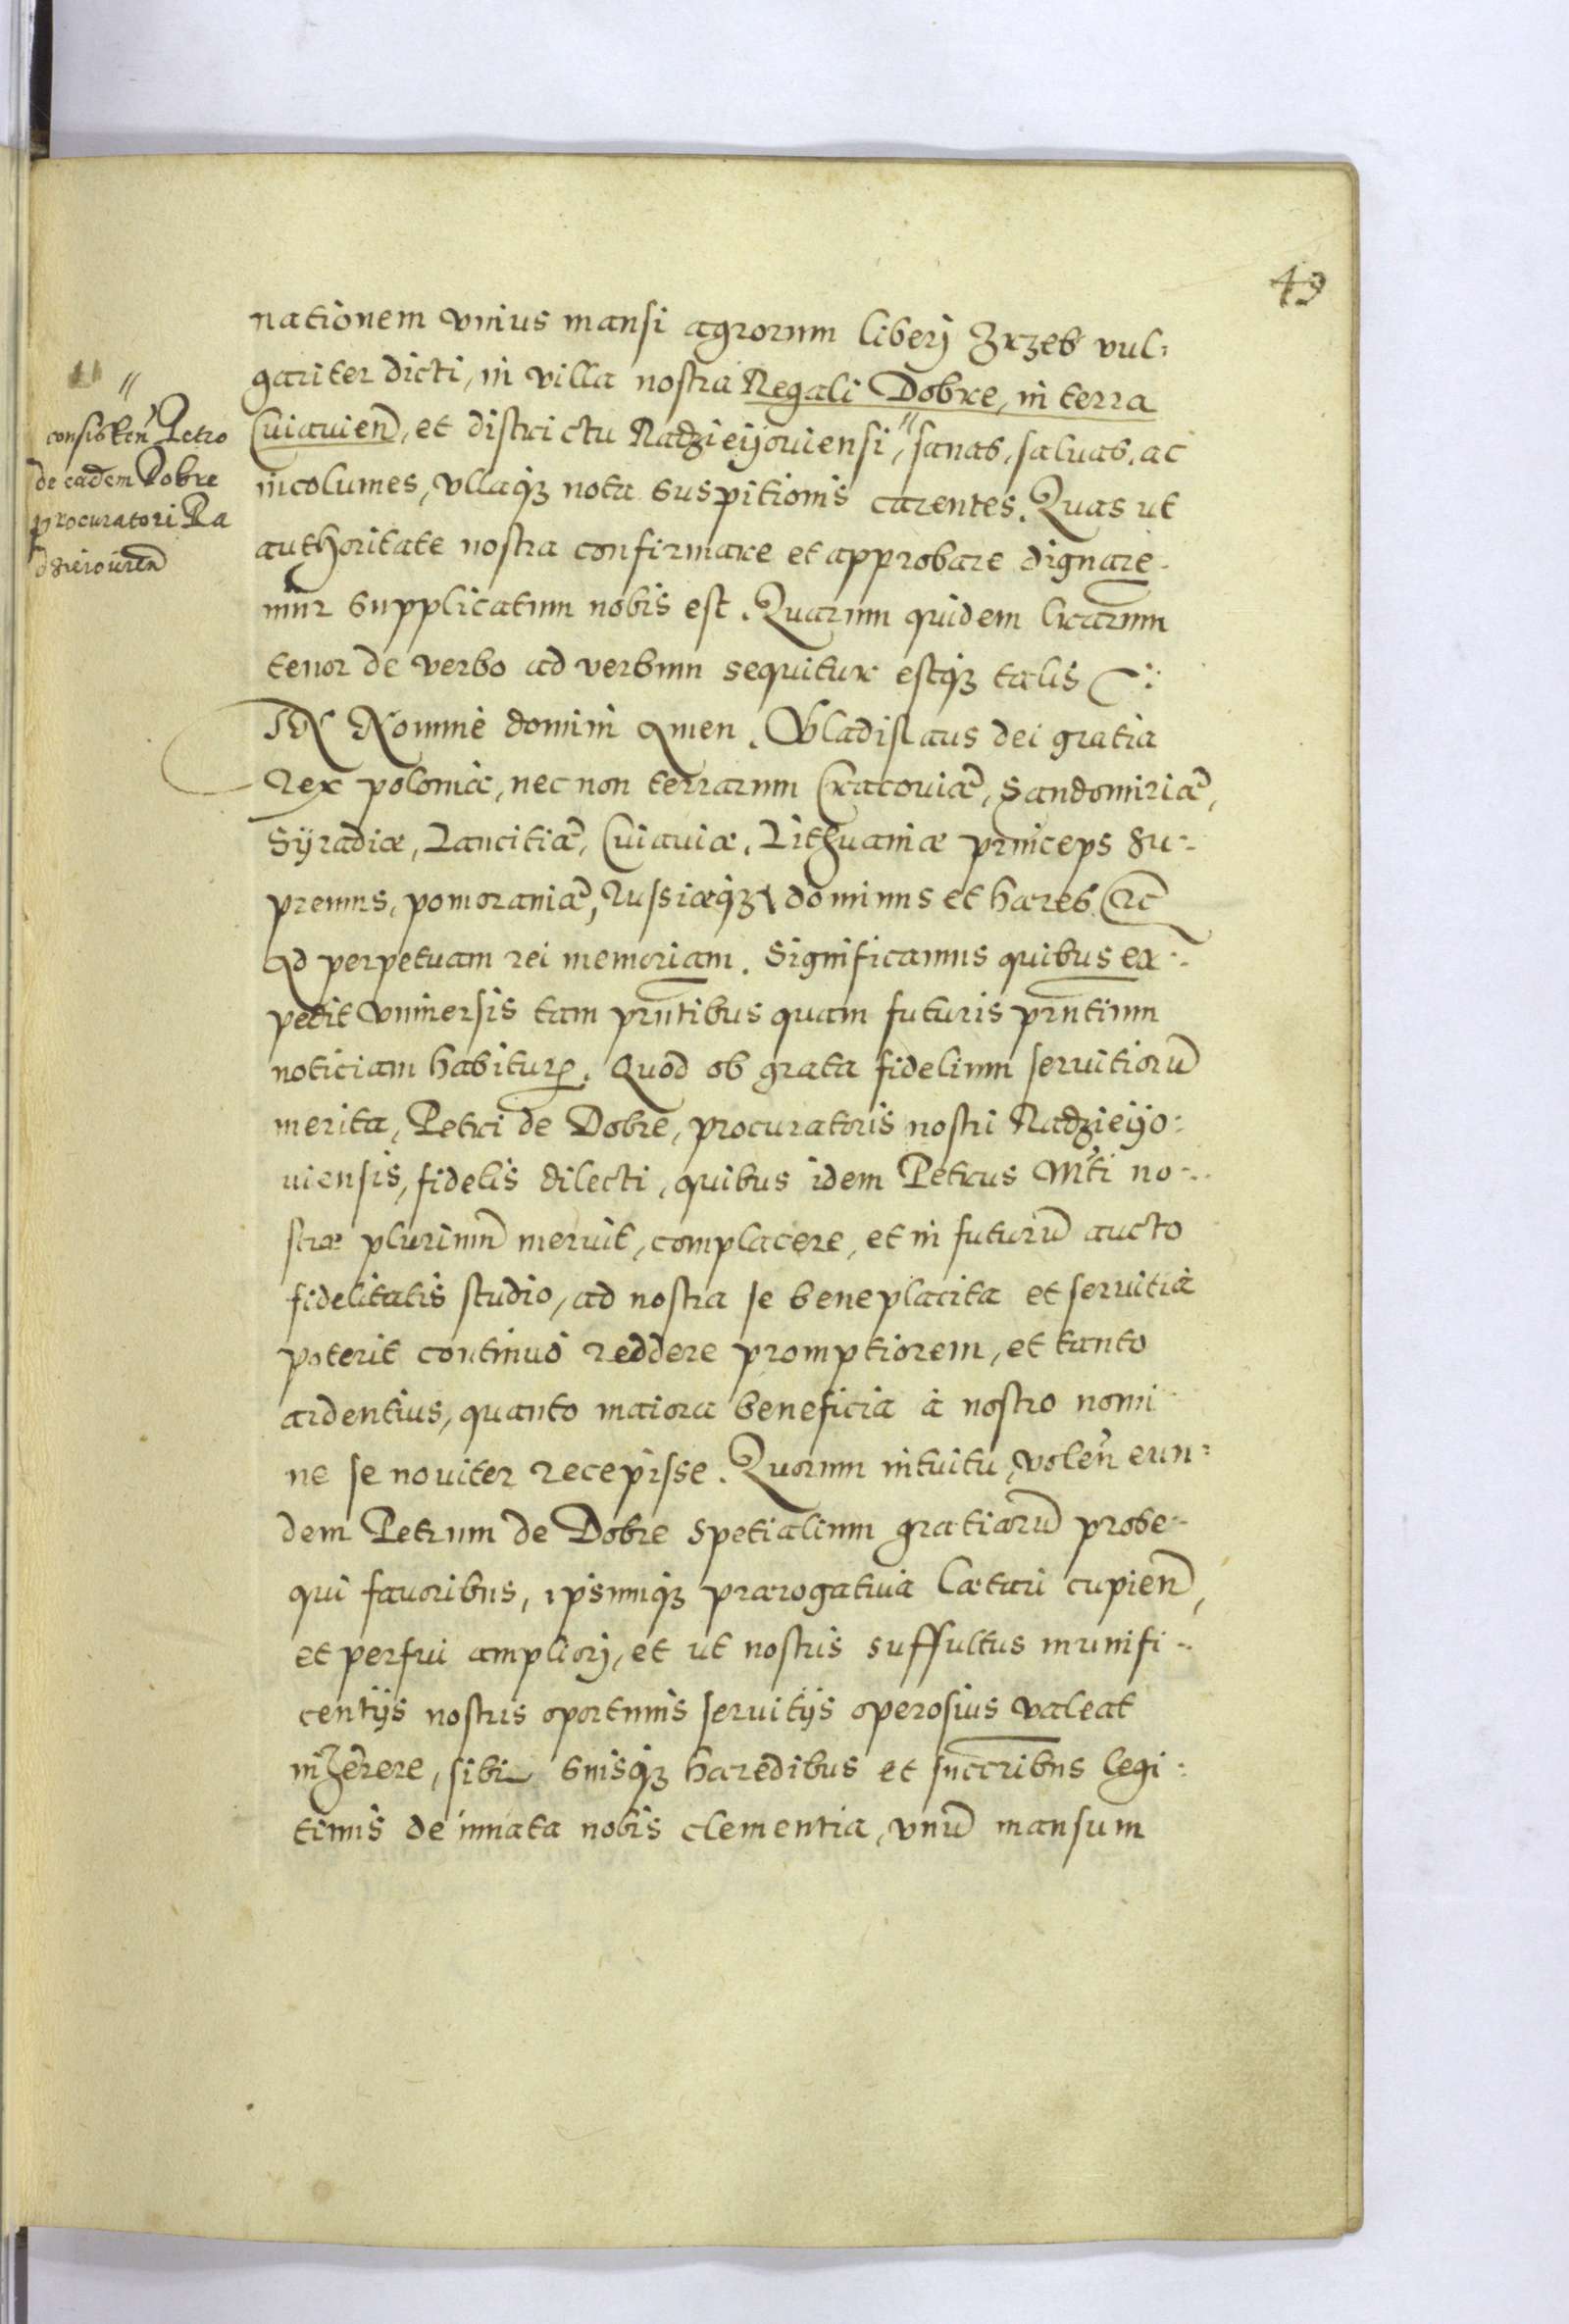 49
nationem vnius mansi agrorum liberj Zrzeb vul:
gariter dicti, in villa nostra Regali Dobre, in terra
Cuiauien, et districtu Radzieÿouiensi,〃 sanas, saluas, ac
incolumes, vllaqȝ nota suspitionis carentes. Quas ut
authoritate nostra confirmare et approbare dignare-
mur supplicatum nobis est. Quarum quidem lrarum
tenor de verbo ad verbum sequitur estqȝ talis
〃
consisten Petro
de eadem Dobre
procuratori Ra
dzieiouien
IN Nomine domini Amen. Wladislaus dei gratia
Rex poloniæ, nec non terrarum Cracouiæ, Sandomiriæ,
Sÿradiæ, Lancitiæ, Cuiauiæ, Lithuaniæ princeps su-
premus, pomoraniæ, Russiæqȝ dominus et hæres etc
Ad perpetuam rei memoriam. Significamus quibus ex-
pedit vniuersis tam prntibus quam futuris prntium
noticiam habitur. Quod ob grata fidelium seruitioru
merita, Petri de Dobre, procuratoris nostri Radzieÿo:
uiensis, fidelis dilecti, quibus idem Petrus Mti no-
stræ plurimu meruit, complacere, et in futuru aucto
fidelitatis studio, ad nostra se beneplacita et seruitia
poterit continuò reddere promptiorem, et tanto
ardentius, quanto maiora beneficia à nostro nomi
ne se nouiter recepisse. Quorum intuitu, volen eun:
dem Petrum de Dobre spetialium gratiaru prose-
qui fauoribus, ipsumqȝ prærogatiua lætari cupien,
et perfrui ampliorj, et ut nostris suffultus munifi-
centijs nostris oportunis seruitijs operosius valeat
inhærere, sibi suisqȝ hæredibus et succribus legi:
timis de innata nobis clementia, vnu mansum